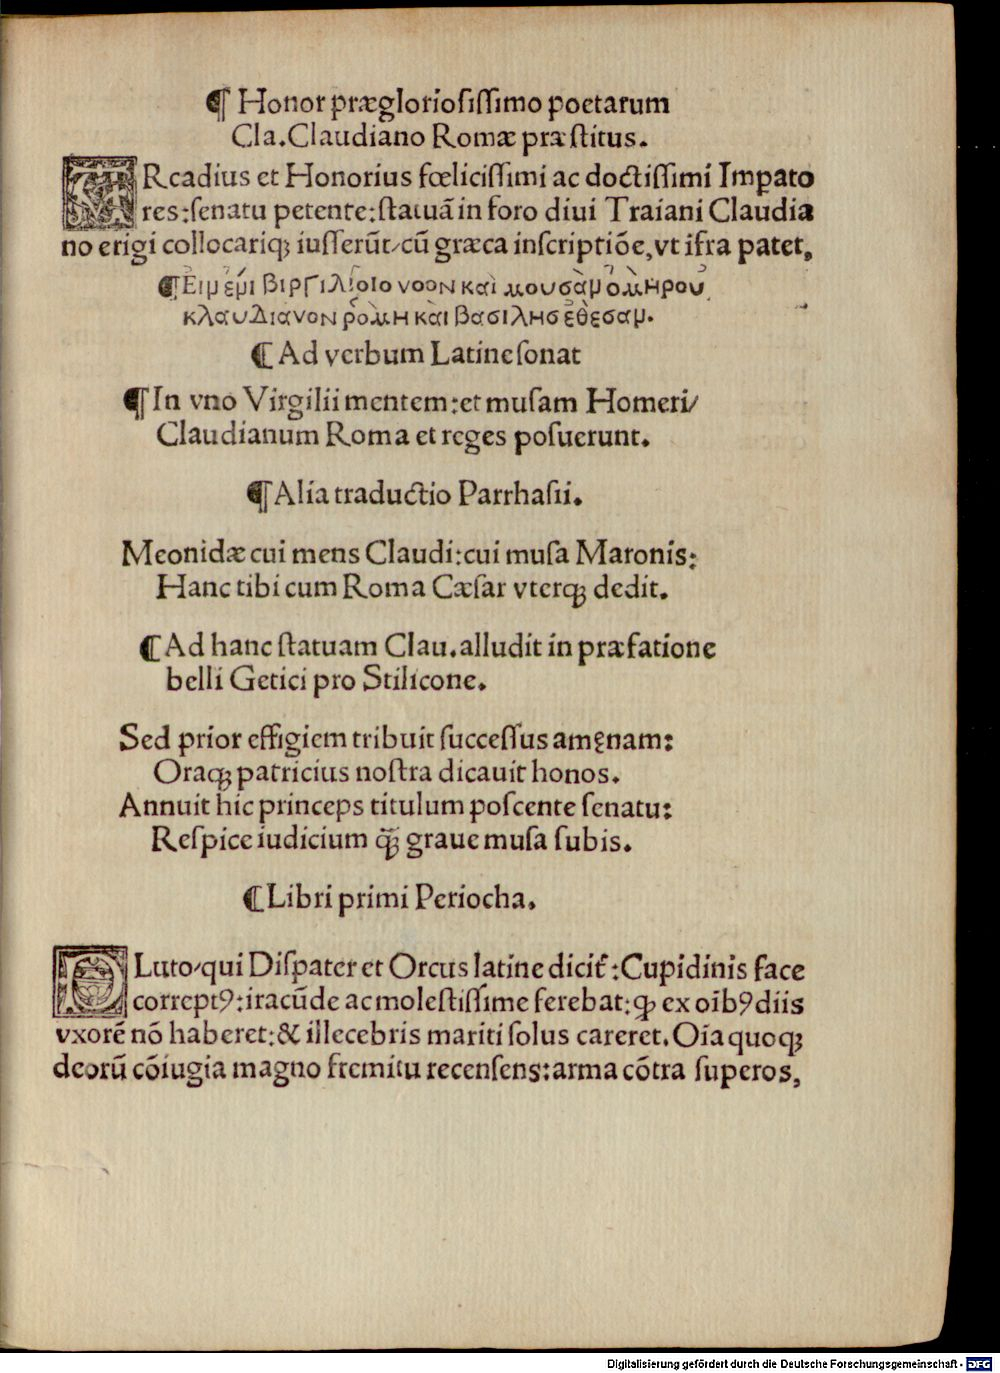 ¶ Honor prægloriosissimo poetarum
Cla. Claudiano Romæ præstitus.
ARcadius et Honorius fœlicissimi ac doctissimi Impato
res: senatu petente: statuā in foro diui Traiani Claudia
no erigi collocariqꝫ iusserūt/ cū græca inscriptiōe, vt ifra patet,
¶ Ἐιμ ἐμι βιργιλἰοιο νοον και μουσὰμ ὁμηρου
κλαυδιανον ῥομη και βασιλησ ἐθεσαμ.
¶ Ad verbum Latine sonat
¶ In vno Virgilii mentem: et musam Homeri/
Claudianum Roma et reges posuerunt.
¶ Alia traductio Parrhasii.
Meonidæ cui mens Claudi: cui musa Maronis:
Hanc tibi cum Roma Cæsar vterqꝫ dedit.
¶ Ad hanc statuam Clau. alludit in præfatione
belli Getici pro Stilicone.
Sed prior effigiem tribuit successus amęnam:
Oraqꝫ patricius nostra dicauit honos.
Annuit hic princeps titulum poscente senatu:
Respice iudicium q̄ꝫ graue musa subis.
¶ Libri primi Periocha.
PLuto/ qui Dispater et Orcus latine dicit᷑: Cupidinis face
correptꝰ: iracūde ac molestissime ferebat: ꝙ ex oībꝰ diis
vxorē nō haberet: & illecebris mariti solus careret. Oīa quoqꝫ
deorū cōiugia magno fremitu recensens: arma cōtra superos,
Digitalisierung gefördert durch die Deutsche Forschungsgemeinschaft - DFG